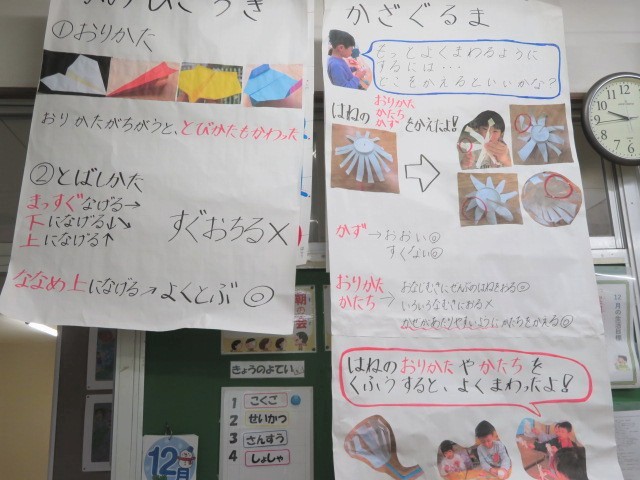 ひこうき
①おりかた
おりかたがちがうと、とびかたもかわった
②とばしかた
まっすぐなげる→
下になげる↓↘
上になげる↑
すぐおちる×
ななめ上になげる↗よくとぶ◎
かざぐるま
もっとよくまわるように
するには…
どこをかえるといいかな?
はねの
おりかた
かたち
かず
をかえよ!
かず→おおい◎
すくない◎
おりかた
かたち→
おなじむきにぜんぶのはねをおる◎
いろいろなむきにおる×
かぜがあたりやすいようにかたちをかえる◎
はねのおりかたやかたちを
くふうすると、よくまわったよ!
朝の会
きょうのよてい
1 こくご
2 せいかつ
3 さんすう
4 しょしゃ
12月
12月の生活目標